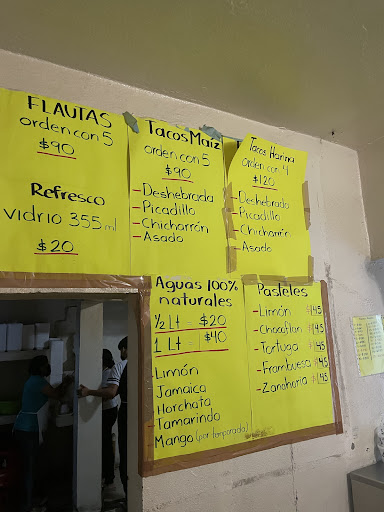 FLAUTAS
orden con 5
$90
Refresco
vidrio 355 ml
$20
Tacos Maíz
orden con 5
$90
- Deshebrada
- Picadillo
- Chicharrón
- Asado
Tacos Harina
orden con 4
$120
- Deshebrada
- Picadillo
- Chicharrón
- Asado
Aguas 100%
naturales
1/2 Lt = $20
1 Lt = $40
Limón
Jamaica
Horchata
Tamarindo
Mango (por temporada)
Pasteles
- Limón $45
- Chocoflan $45
- Tortuga $45
- Frambuesa $45
- Zanahoria $45